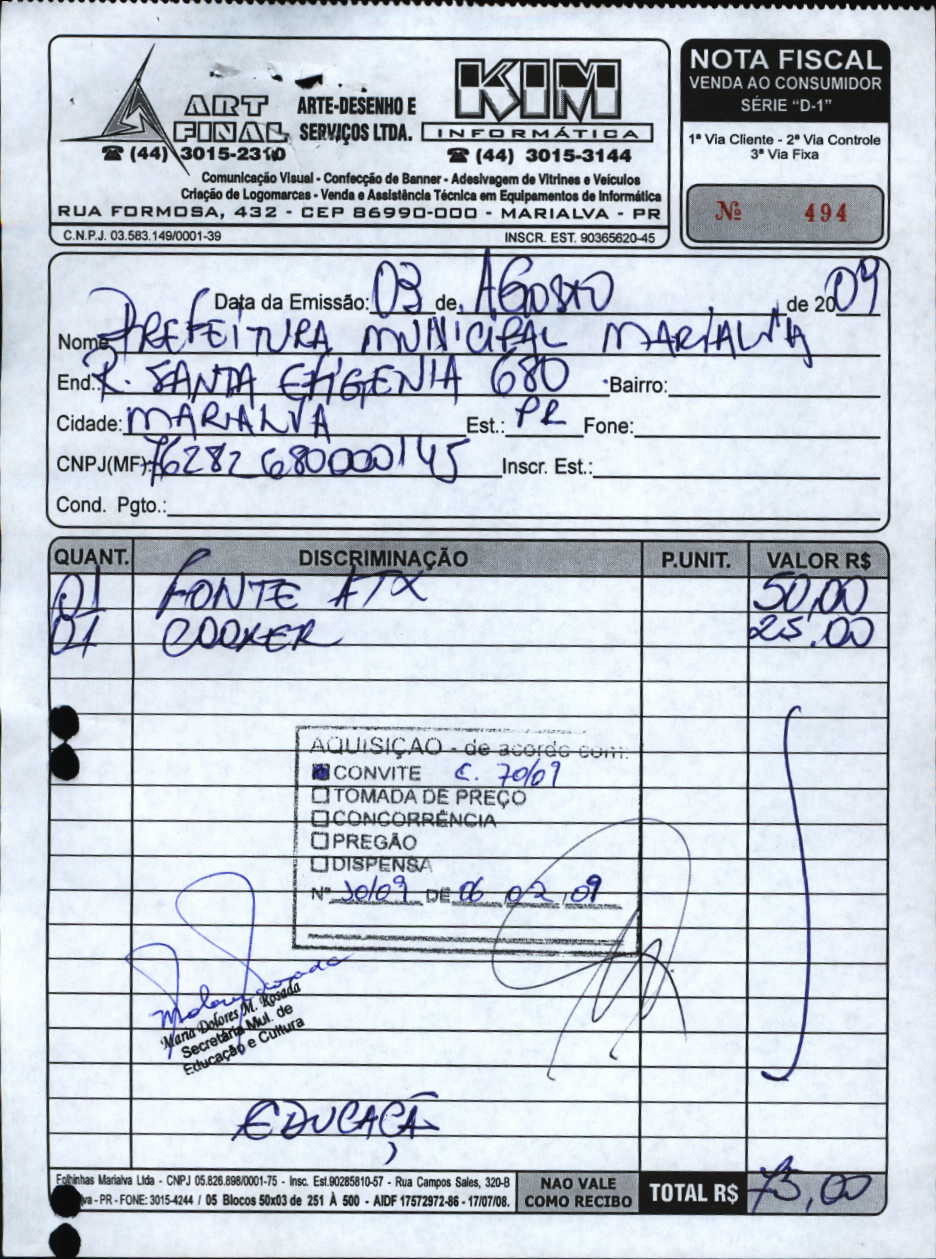 ART FINAL
ARTE-DESENHO E SERVIÇOS LTDA.
☎ (44) 3015-2310
KIM
INFORMÁTICA
☎ (44) 3015-3144
Comunicação Visual - Confecção de Banner - Adesivagem de Vitrines e Veículos
Criação de Logomarcas - Venda e Assistência Técnica em Equipamentos de Informática
RUA FORMOSA, 432 - CEP 86990-000 - MARIALVA - PR
C.N.P.J. 03.583.149/0001-39 INSCR. EST. 90365620-45
NOTA FISCAL
VENDA AO CONSUMIDOR
SÉRIE "D-1"
1ª Via Cliente - 2ª Via Controle
3ª Via Fixa
Nº 494
Data da Emissão: 03 de AGOSTO de 2009
Nome PREFEITURA MUNICIPAL MARIALVA
End.: R. SANTA EFIGENIA 680 Bairro:
Cidade: MARIALVA Est.: PR Fone:
CNPJ(MF): 76282680000145 Inscr. Est.:
Cond. Pgto.:
QUANT. DISCRIMINAÇÃO P.UNIT. VALOR R$
01 FONTE ATX 50,00
01 COOKER 25,00
AQUISIÇÃO - de acordo com:
CONVITE C. 70/09
TOMADA DE PREÇO
CONCORRÊNCIA
PREGÃO
DISPENSA
Nº 30/09 DE 06 02 09
Maria Dolores M. Rosada
Secretária Mul. de
Educação e Cultura
EDUCAÇÃ
Folhinhas Marialva Ltda - CNPJ 05.826.898/0001-75 - Insc. Est.90285810-57 - Rua Campos Sales, 320-B
va - PR - FONE: 3015-4244 / 05 Blocos 50x03 de 251 À 500 - AIDF 17572972-86 - 17/07/08.
NAO VALE
COMO RECIBO
TOTAL R$ 75,00